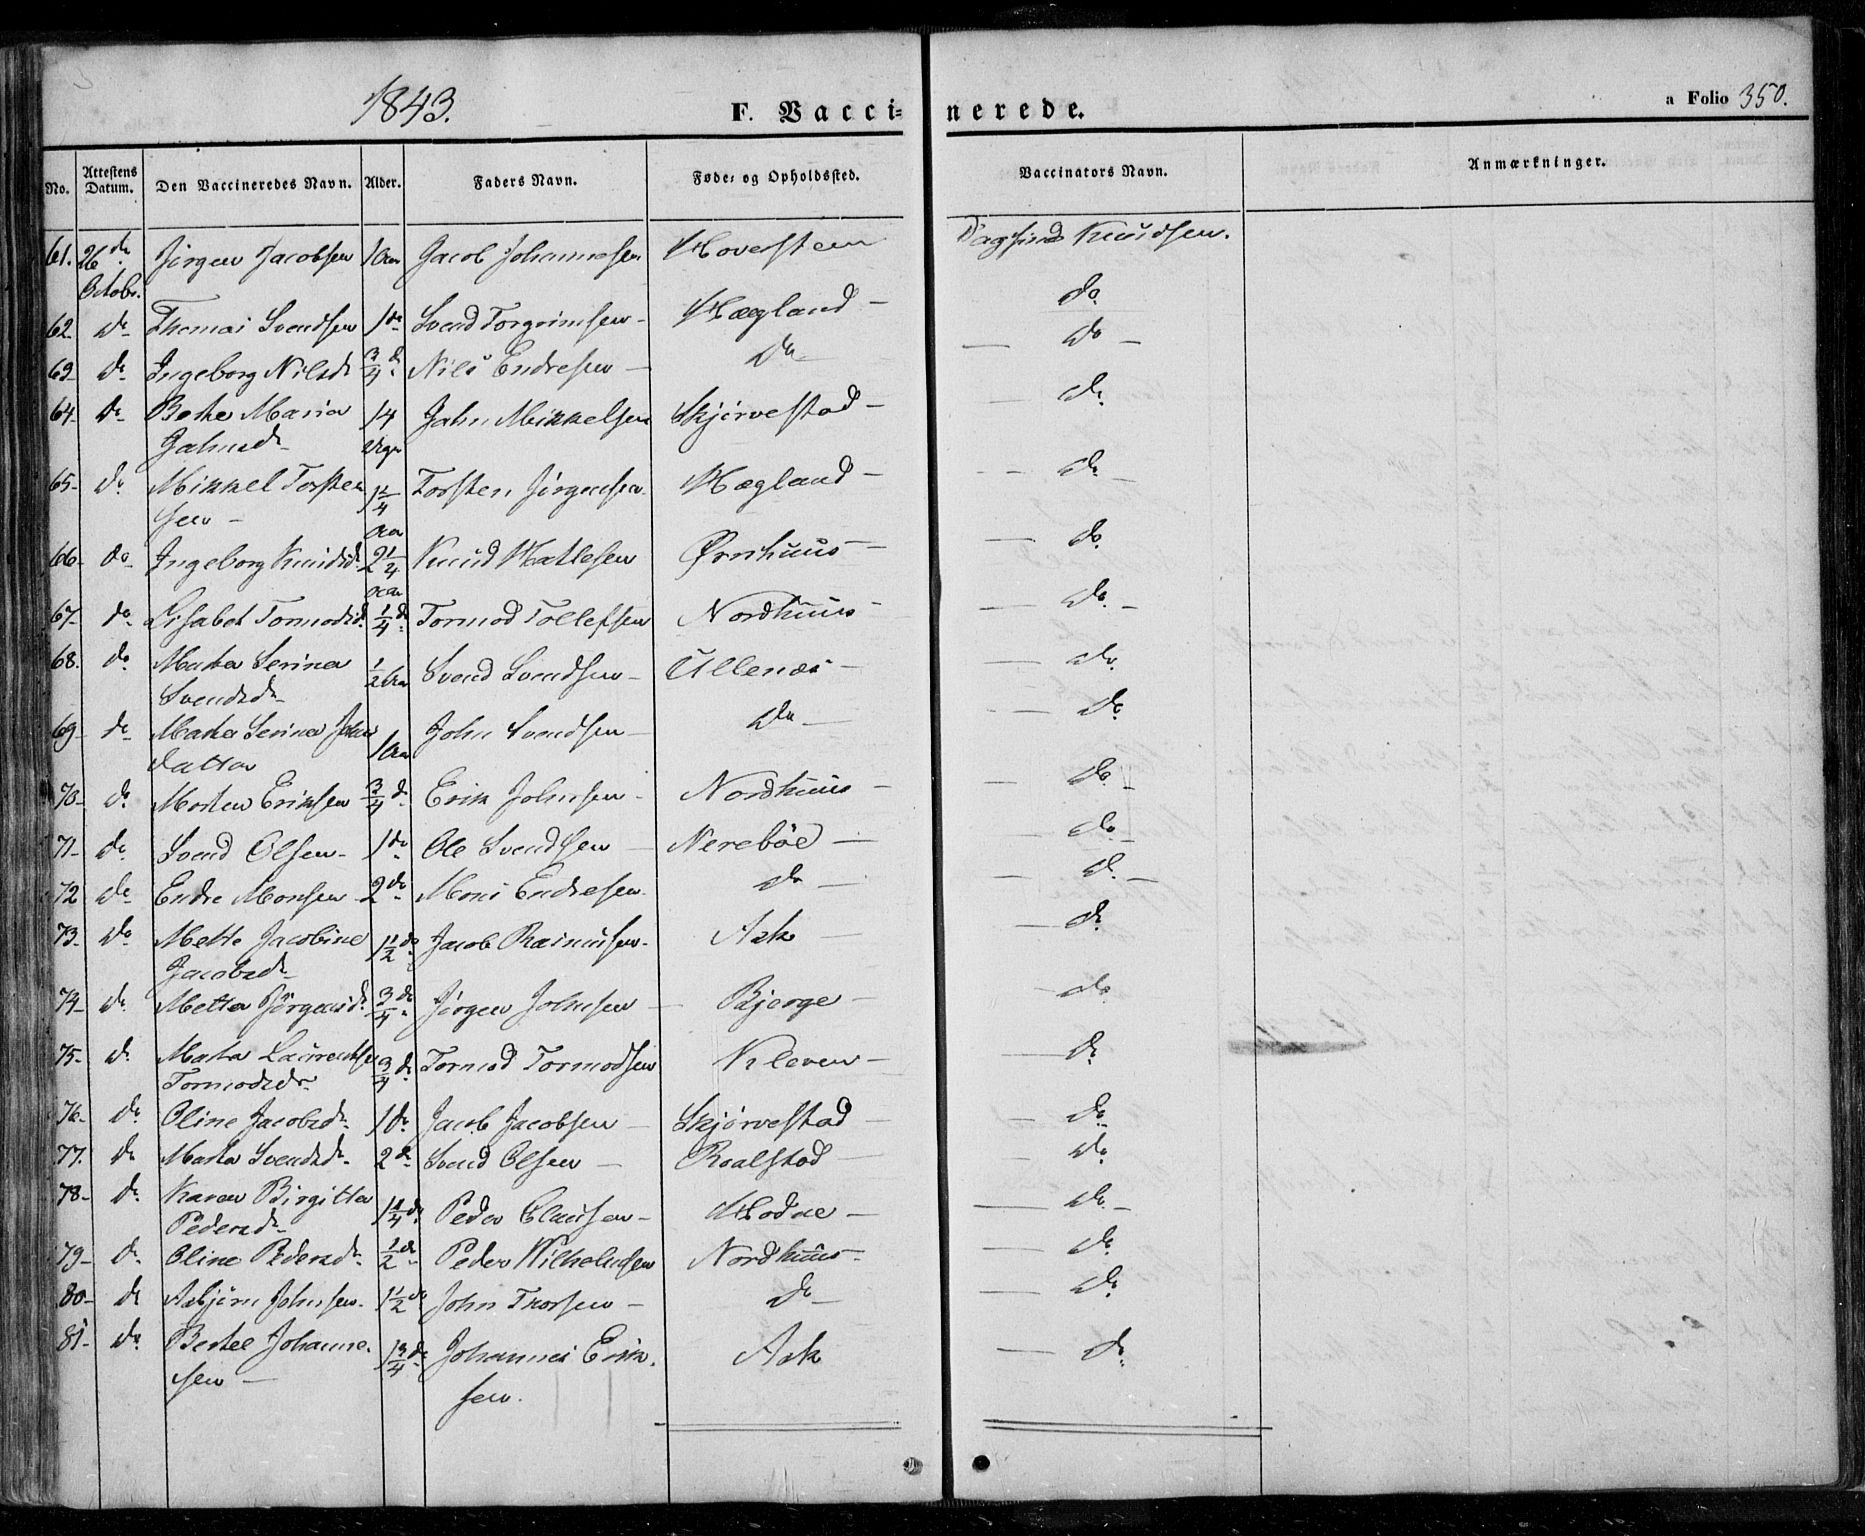 1843.
F. Vacci=
nerede.
a Folio 350.
No. Attestens Datum. Den Vaccineredes Navn. Alder. Faders Navn. Føde= og Opholdssted. Vaccinators Navn. Anmærkninger.
61. 26de Octobr. Jørgen Jacobsen 1 Aar Jacob Johannesen Hovestein Dagfind Knudsen.
62. Do Thomas Svendsen 1 do Svend Torgrimsen - Hægland - do
63- do Ingeborg Nilsd 3/4 do Nils Endresen - Do - do -
64- do Berte Maria 14 Jahn Mikkelsen Skjørvestad - do
Jahnsdr Uger
65- Do Mikkel Torsten 1 1/4 Torsten Jørgensen Hægland - do
sen - Aar
66- do Ingeborg Knudsd 2 1/4 Knud Matlesen Ørnhuus - do
Aar
67- do Lisabet Tormodsd. 1/4 do Tormod Tollefsen Nordhuus - do -
68. do Marta Serina 1/2 Aar Svend Svendsen - Ullenæs - do
Svendsdr
69- do Marta Serina John 1 Aar John Svendsen - Do - do
datter
70- do Morten Eriksen 3/4 do Erik Johnsen - Nordhuus - do -
71- do Svend Olsen - 1 do Ole Svendsen - Nerebøe - do -
72 do Endre Monsen 2 do Mons Endresen Do - do -
73. Do Mette Jacobine 1 1/2 do Jacob Rasmusen - Ask - do
Jacobsdr
74- do Metta Jørgensd. 3/4 do Jørgen Johnsen - Bjerge - do
75- do Marta Laurentse 3/4 do Tormod Tormodsen Kleven - do
Tormodsdr
76- do Oline Jacobsdr 1 do Jacob Jacobsen - Skjørvestad - do
77. do Marta Svendsdr 2 do Svend Olsen - Roalstad - do
78- do Karen Birgitta 1 1/4 do Peder Clausen - Hodne - do -
Pedersdr
79- do Oline Pedersdr 1/2 do Peder Wilhelmsen Nordhuus - do
80- do Asbjørn Johnsen. 1 1/2 do John Thorsen - Do - do
81- do Bertel Johanne- 1 3/4 do Johannes Erik- Ask do
sen - sen.